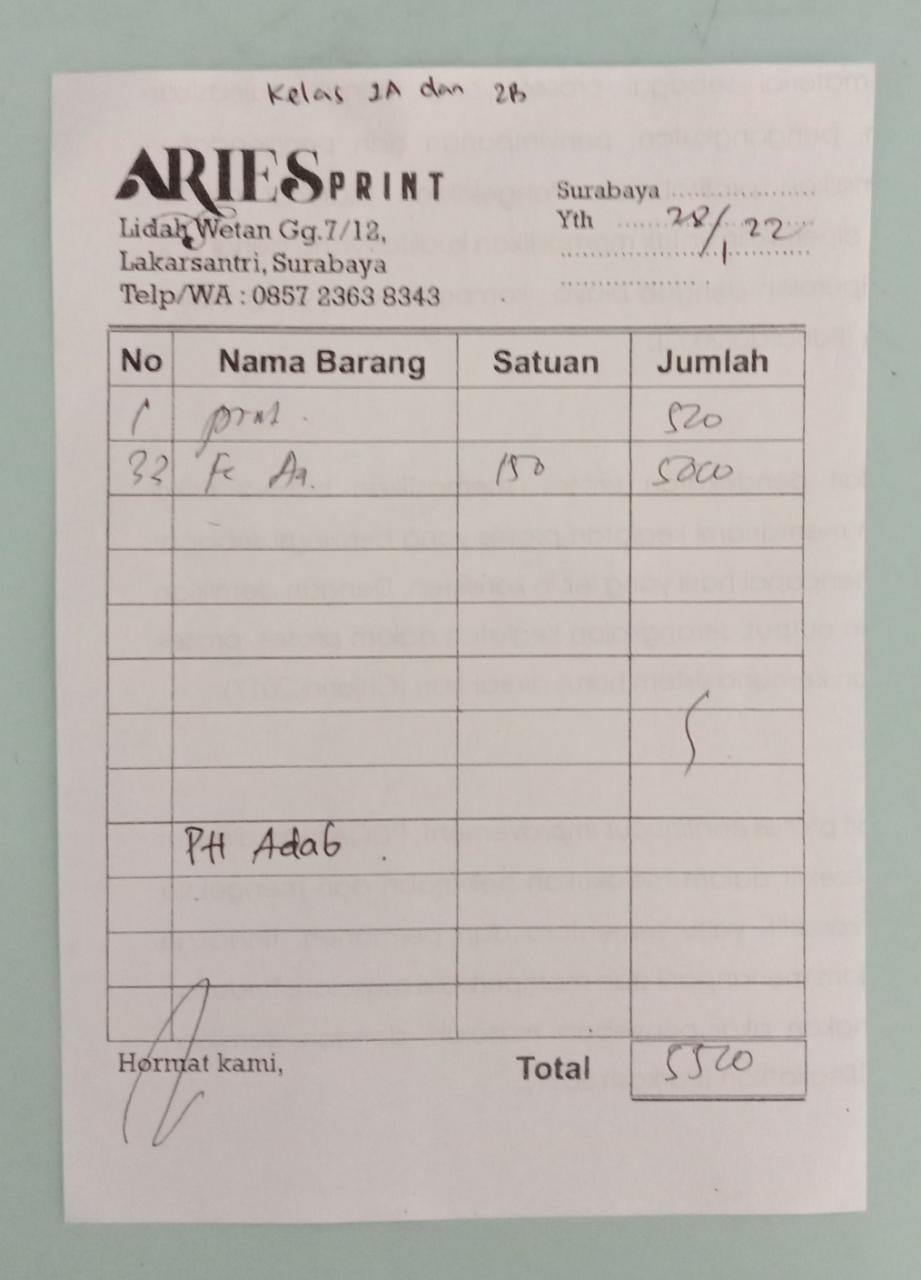 Kelas 2A dan 2B
ARIES PRINT
Lidah Wetan Gg.7/12,
Lakarsantri, Surabaya
Telp/WA : 0857 2363 8343
Surabaya
Yth
28/1 22
No Nama Barang Satuan Jumlah
1 print 520
33 Fc A4. 150 5000
PH Adab
Hormat kami,
Total 5520